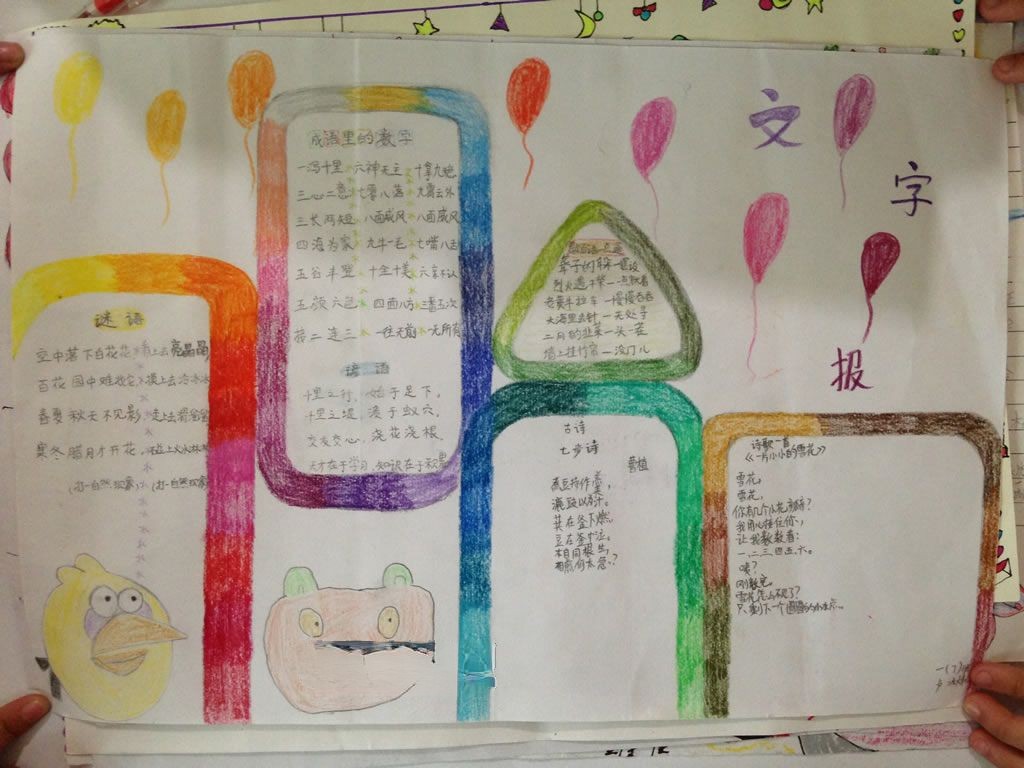 文字报
谜语
空中落下白花花 看上去亮晶晶
百花园中难找它 摸上去冷冰冰
春夏秋天不见影 走上去滑
寒冬腊月才开花 碰上火
(打一自然现象) (打一自然现象)
成语里的数字
一泻十里 六神无主 十拿九
三心二意 七零八落 九霄云外
三长两短 八面威风 八面威风
四海为家 九牛一毛 七嘴八舌
五谷丰登 十全十美 六亲不认
五颜六色 四面八方 三番五次
接二连三 一往无前 一无所有
谚语
千里之行,始于足下。
千里之堤,溃于蚁穴。
交友交心,浇花浇根。
天才在于学习,知识在于积累
歇后语
聋子的耳朵—摆设
烈火遇干柴—一点就着
老黄牛拉车—慢慢吞吞
大海里去针—无处寻
二月的韭菜—头一茬
墙上挂竹帘—没门儿
古诗
七步诗
曹植
煮豆持作羹,
漉豉以为汁。
萁在釜下燃,
豆在釜中泣。
本自同根生,
相煎何太急。?
诗歌一首
《一片小小的雪花》
雪花,
雪花,
你有几个小花瓣?
我用心接住你,
让我数数看:
一、二、三、四、五、六。
咦?
刚数完,
雪花怎么不见了?
只剩下一个圆圆的小水点。